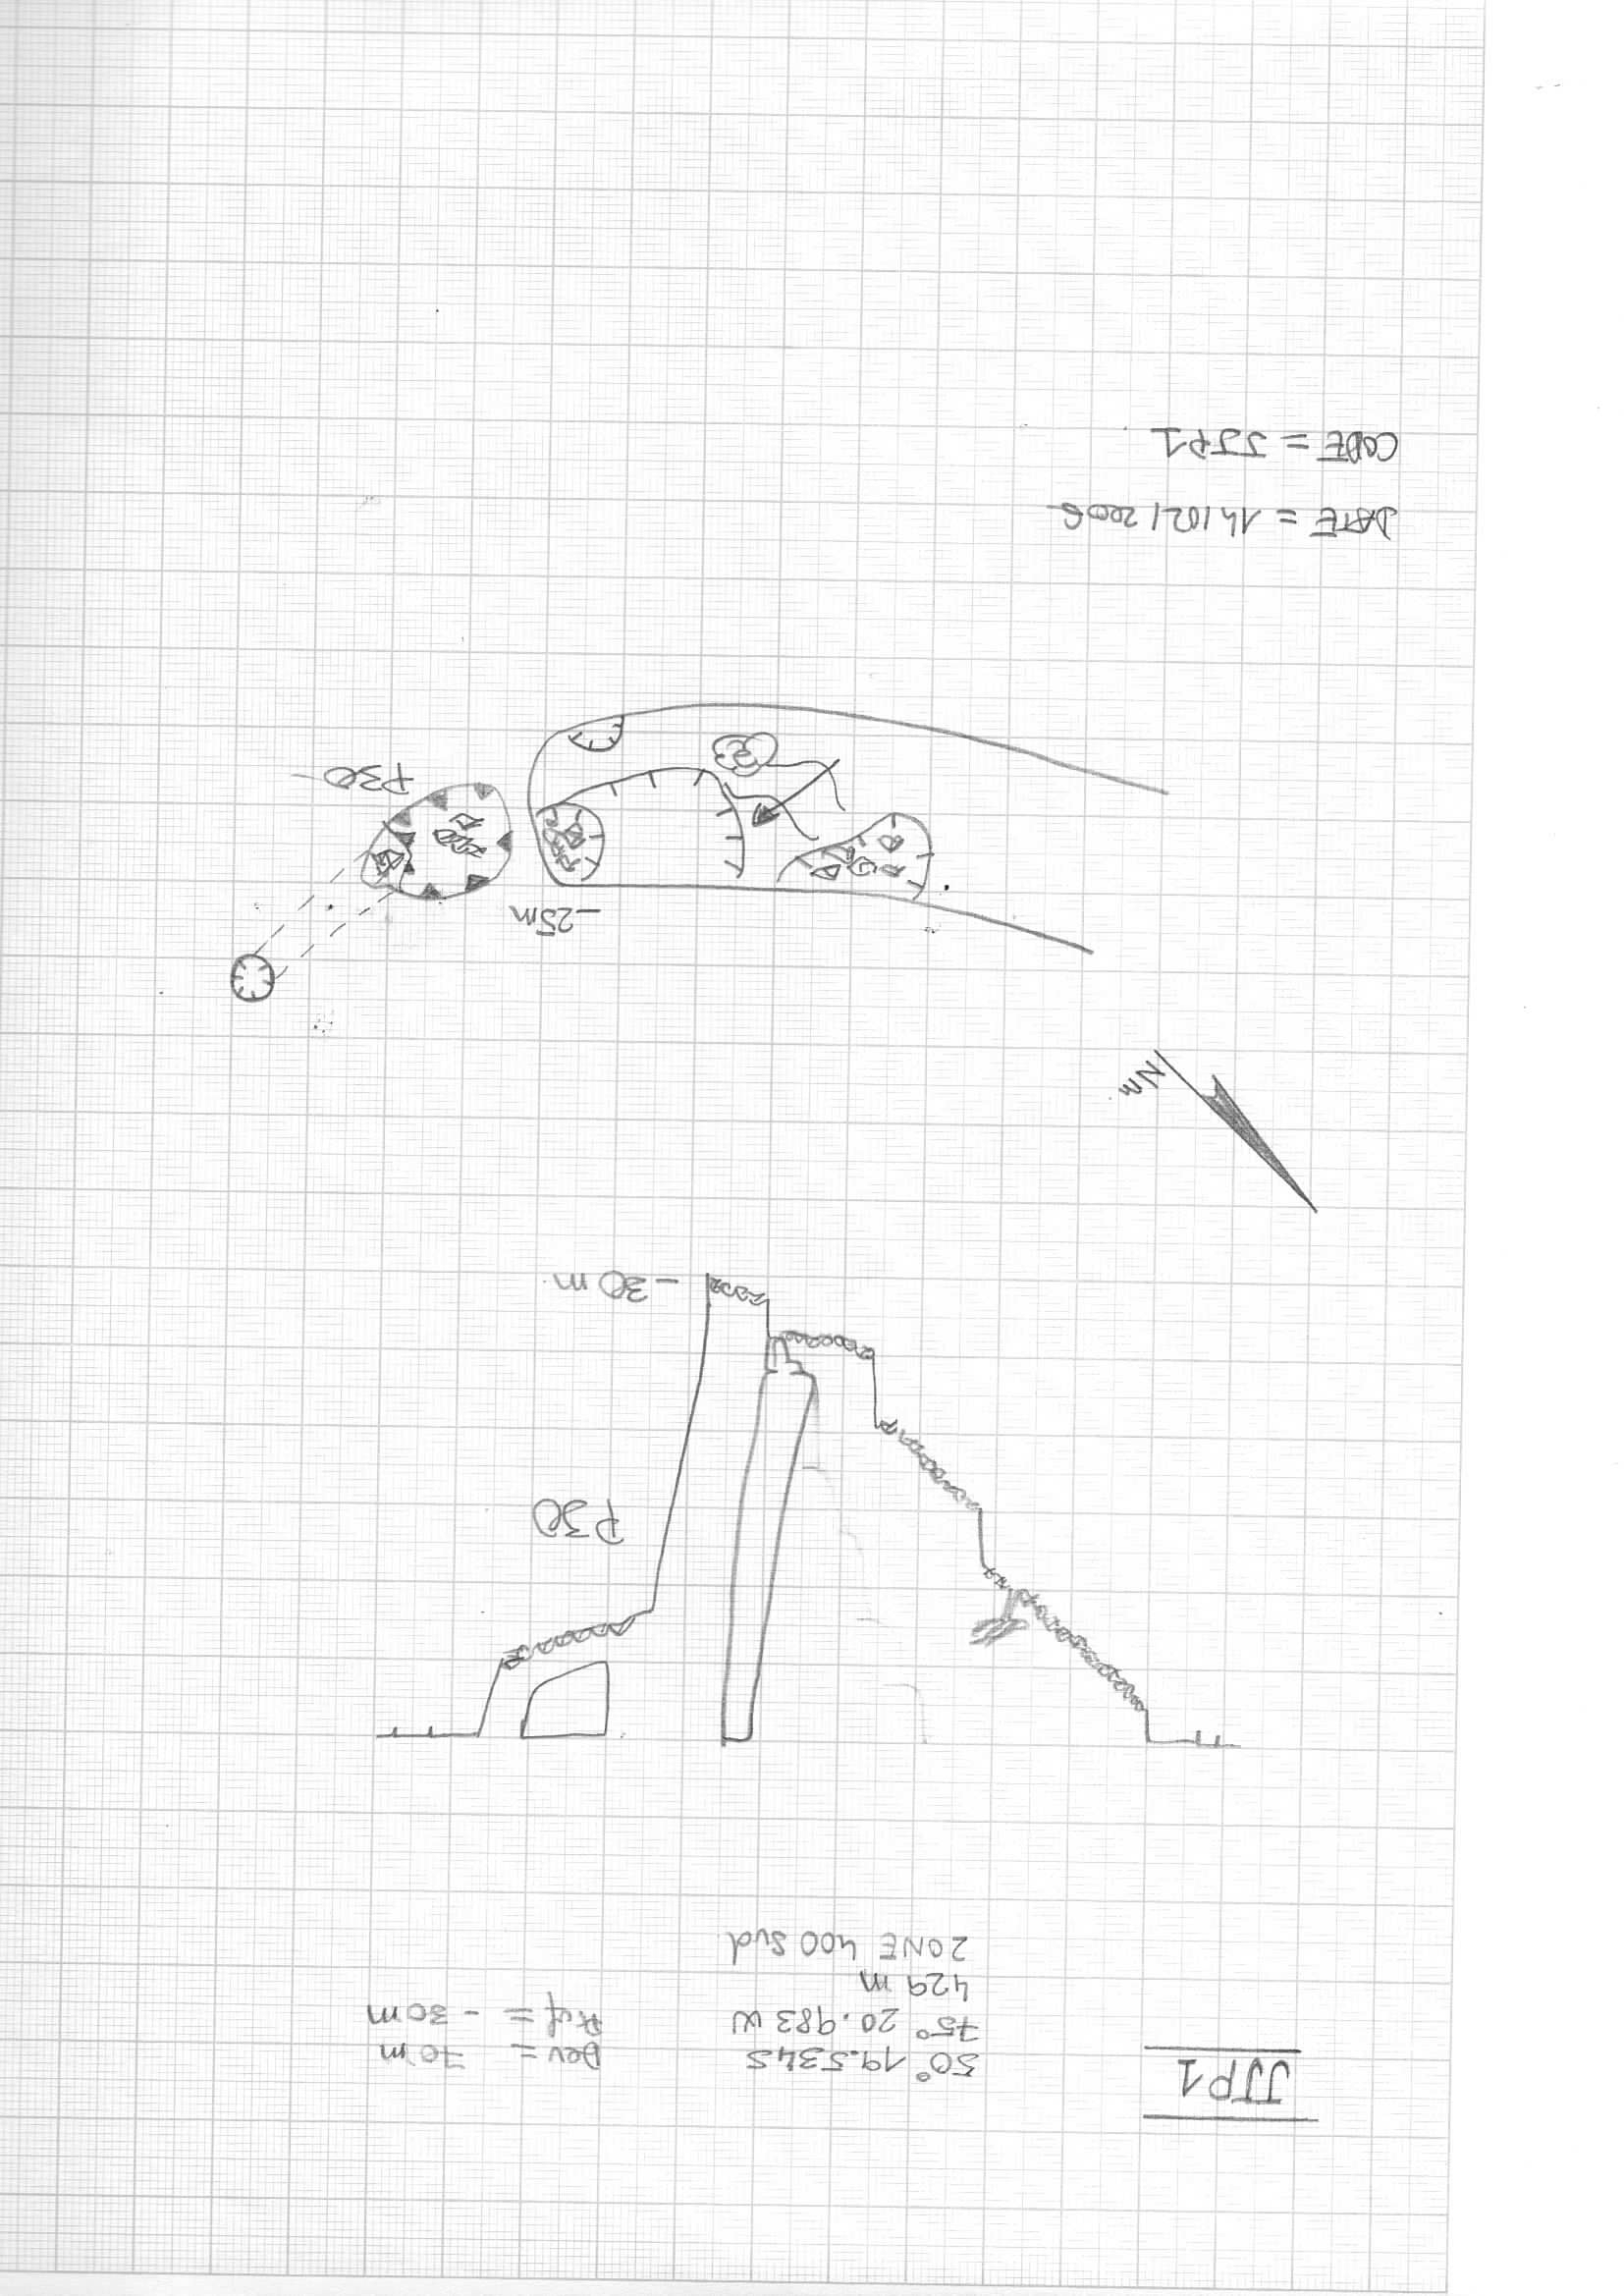 JJP1
50° 19.534S
75° 20.983 W
429 m
ZONE 400 Sud
Dev = 70m
Prof = - 30m
P30
-30m
Nm
-25m
P30
DATE = 14/02/2006
CODE = JJP1